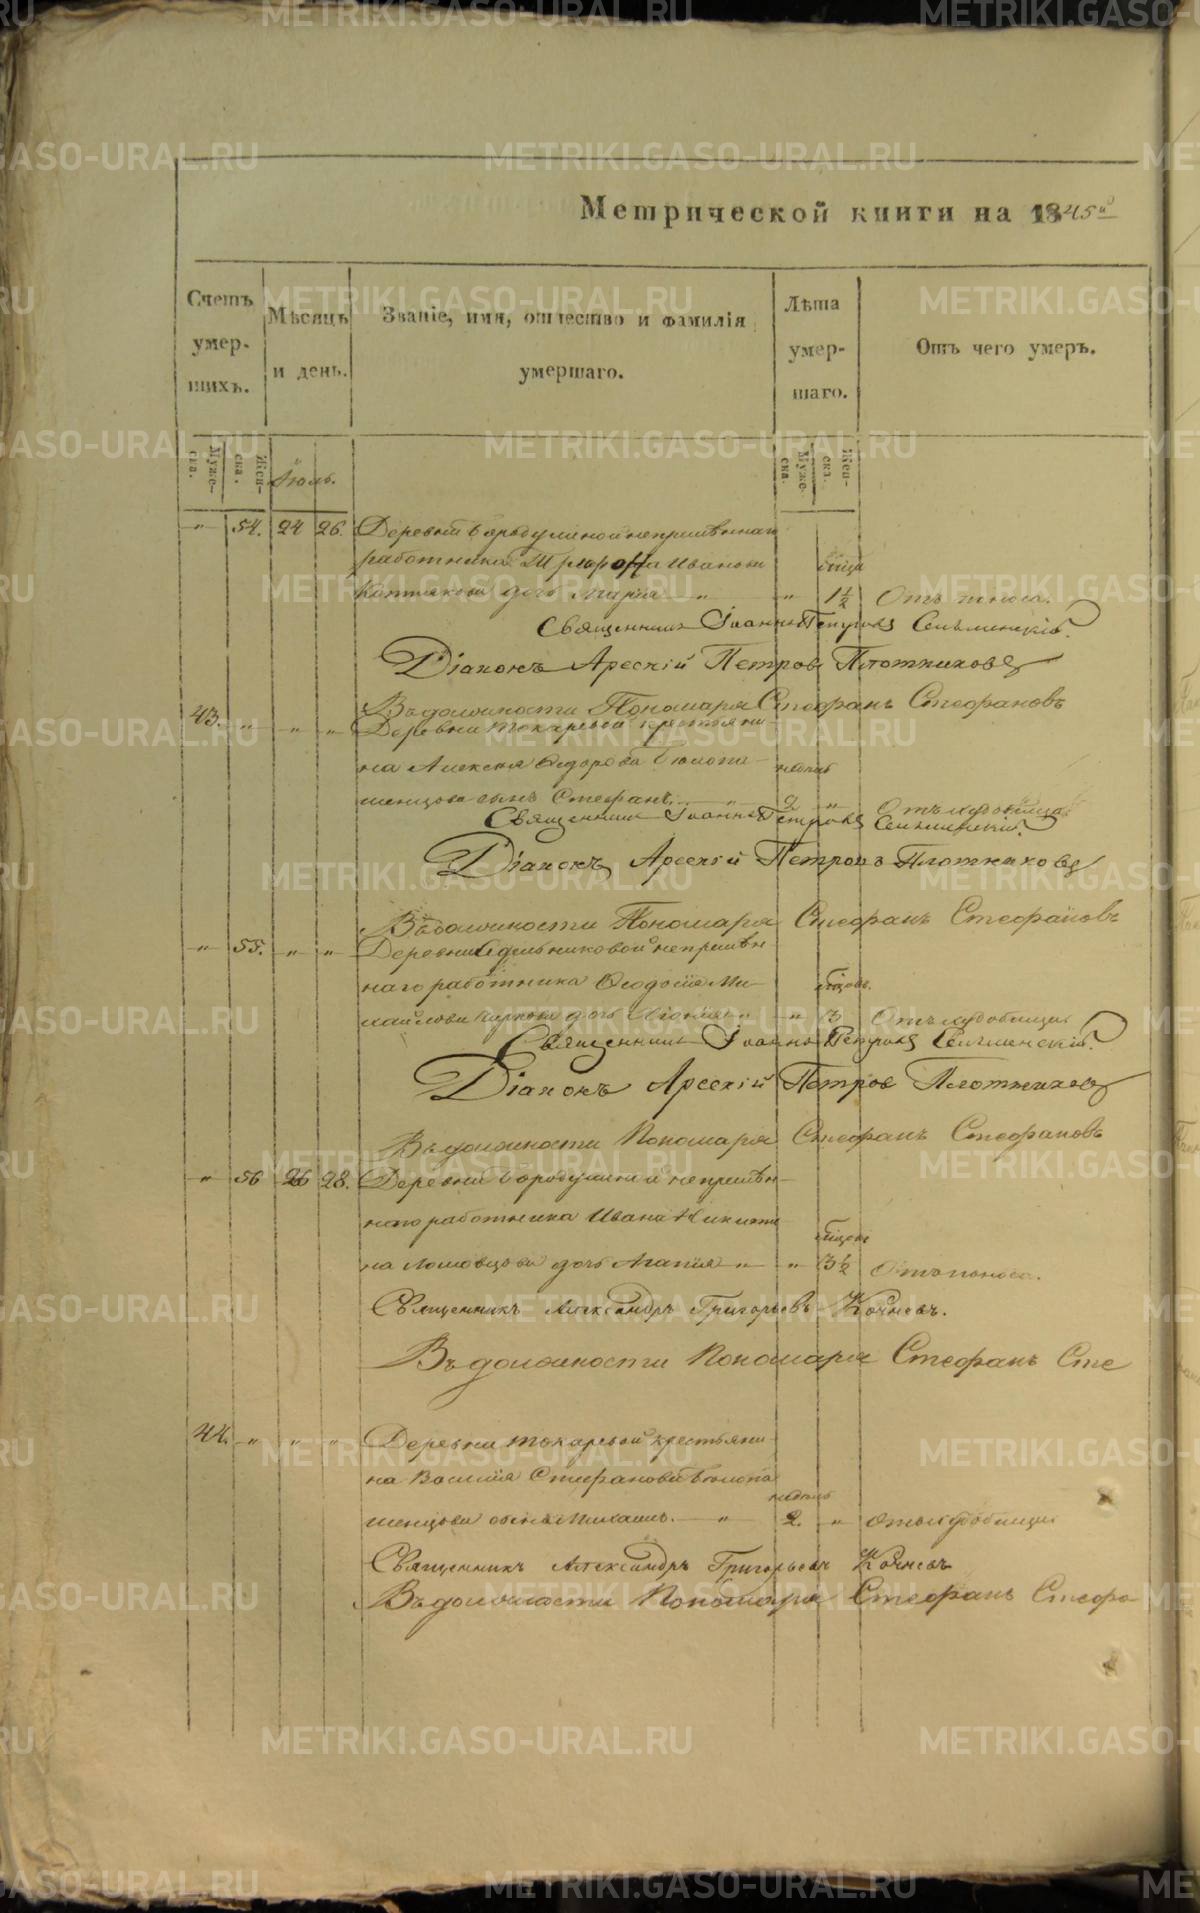 Метрической книги на 1845й
Счетъ умер-шихъ.
Мѣсяцъ и день.
Званіе, имя, отчество и фамилія умершаго.
Лѣта умер-шаго.
Отъ чего умеръ.
Муже-ска.
Жен-ска.
Іюль.
Муже-ска.
Жен-ска.
" 54. 24 26. Деревни Бородулиной непремѣннаго
работника Иванова
дочь Марія " " 1½ Отъ поноса.
Священникъ Іоаннъ Петровъ Сельменскій.
Діаконъ Арсеній Петров Плотниковъ
Въ должности Пономаря Стефанъ Стефановъ
43. " " " Деревни Токаревой крестьяни-
на Алексѣя Ѳедорова Бѣлопа- недѣль
шенцова сынъ Стефанъ. " 2 " Отъ худобища
Священникъ Іоаннъ Петровъ Сельменскій.
Діаконъ Арсеній Петровъ Плотниковъ
Въ должности Пономаря Стефанъ Стефановъ
" 55. " " Деревни непремѣн
наго работника Ѳеодосія Ми- мѣсяцовъ.
хайлова дочь " " 3 Отъ худобища
Священникъ Іоаннъ Петровъ Сельменскій.
Діаконъ Арсеній Петров Плотниковъ
Въ должности Пономаря Стефанъ Стефановъ
" 56 26 28. Деревни Бородулиной непремѣн-
наго работника Ивана Никити
на дочь Агапія " " 3½ Отъ поноса.
Священникъ Александръ Григорьевъ Кочневъ.
Въ должности Пономаря Стефанъ Сте
44. " " " Деревни Токаревой крестьяни-
на Василія Стефанова Бѣлопа недѣль
шенцова сынъ Михаилъ. " 2. " Отъ худобищи
Священникъ Александръ Григорьевъ Кочневъ
Въ должности Пономаря Стефанъ Стефа
METRIKI.GASO-URAL.RU